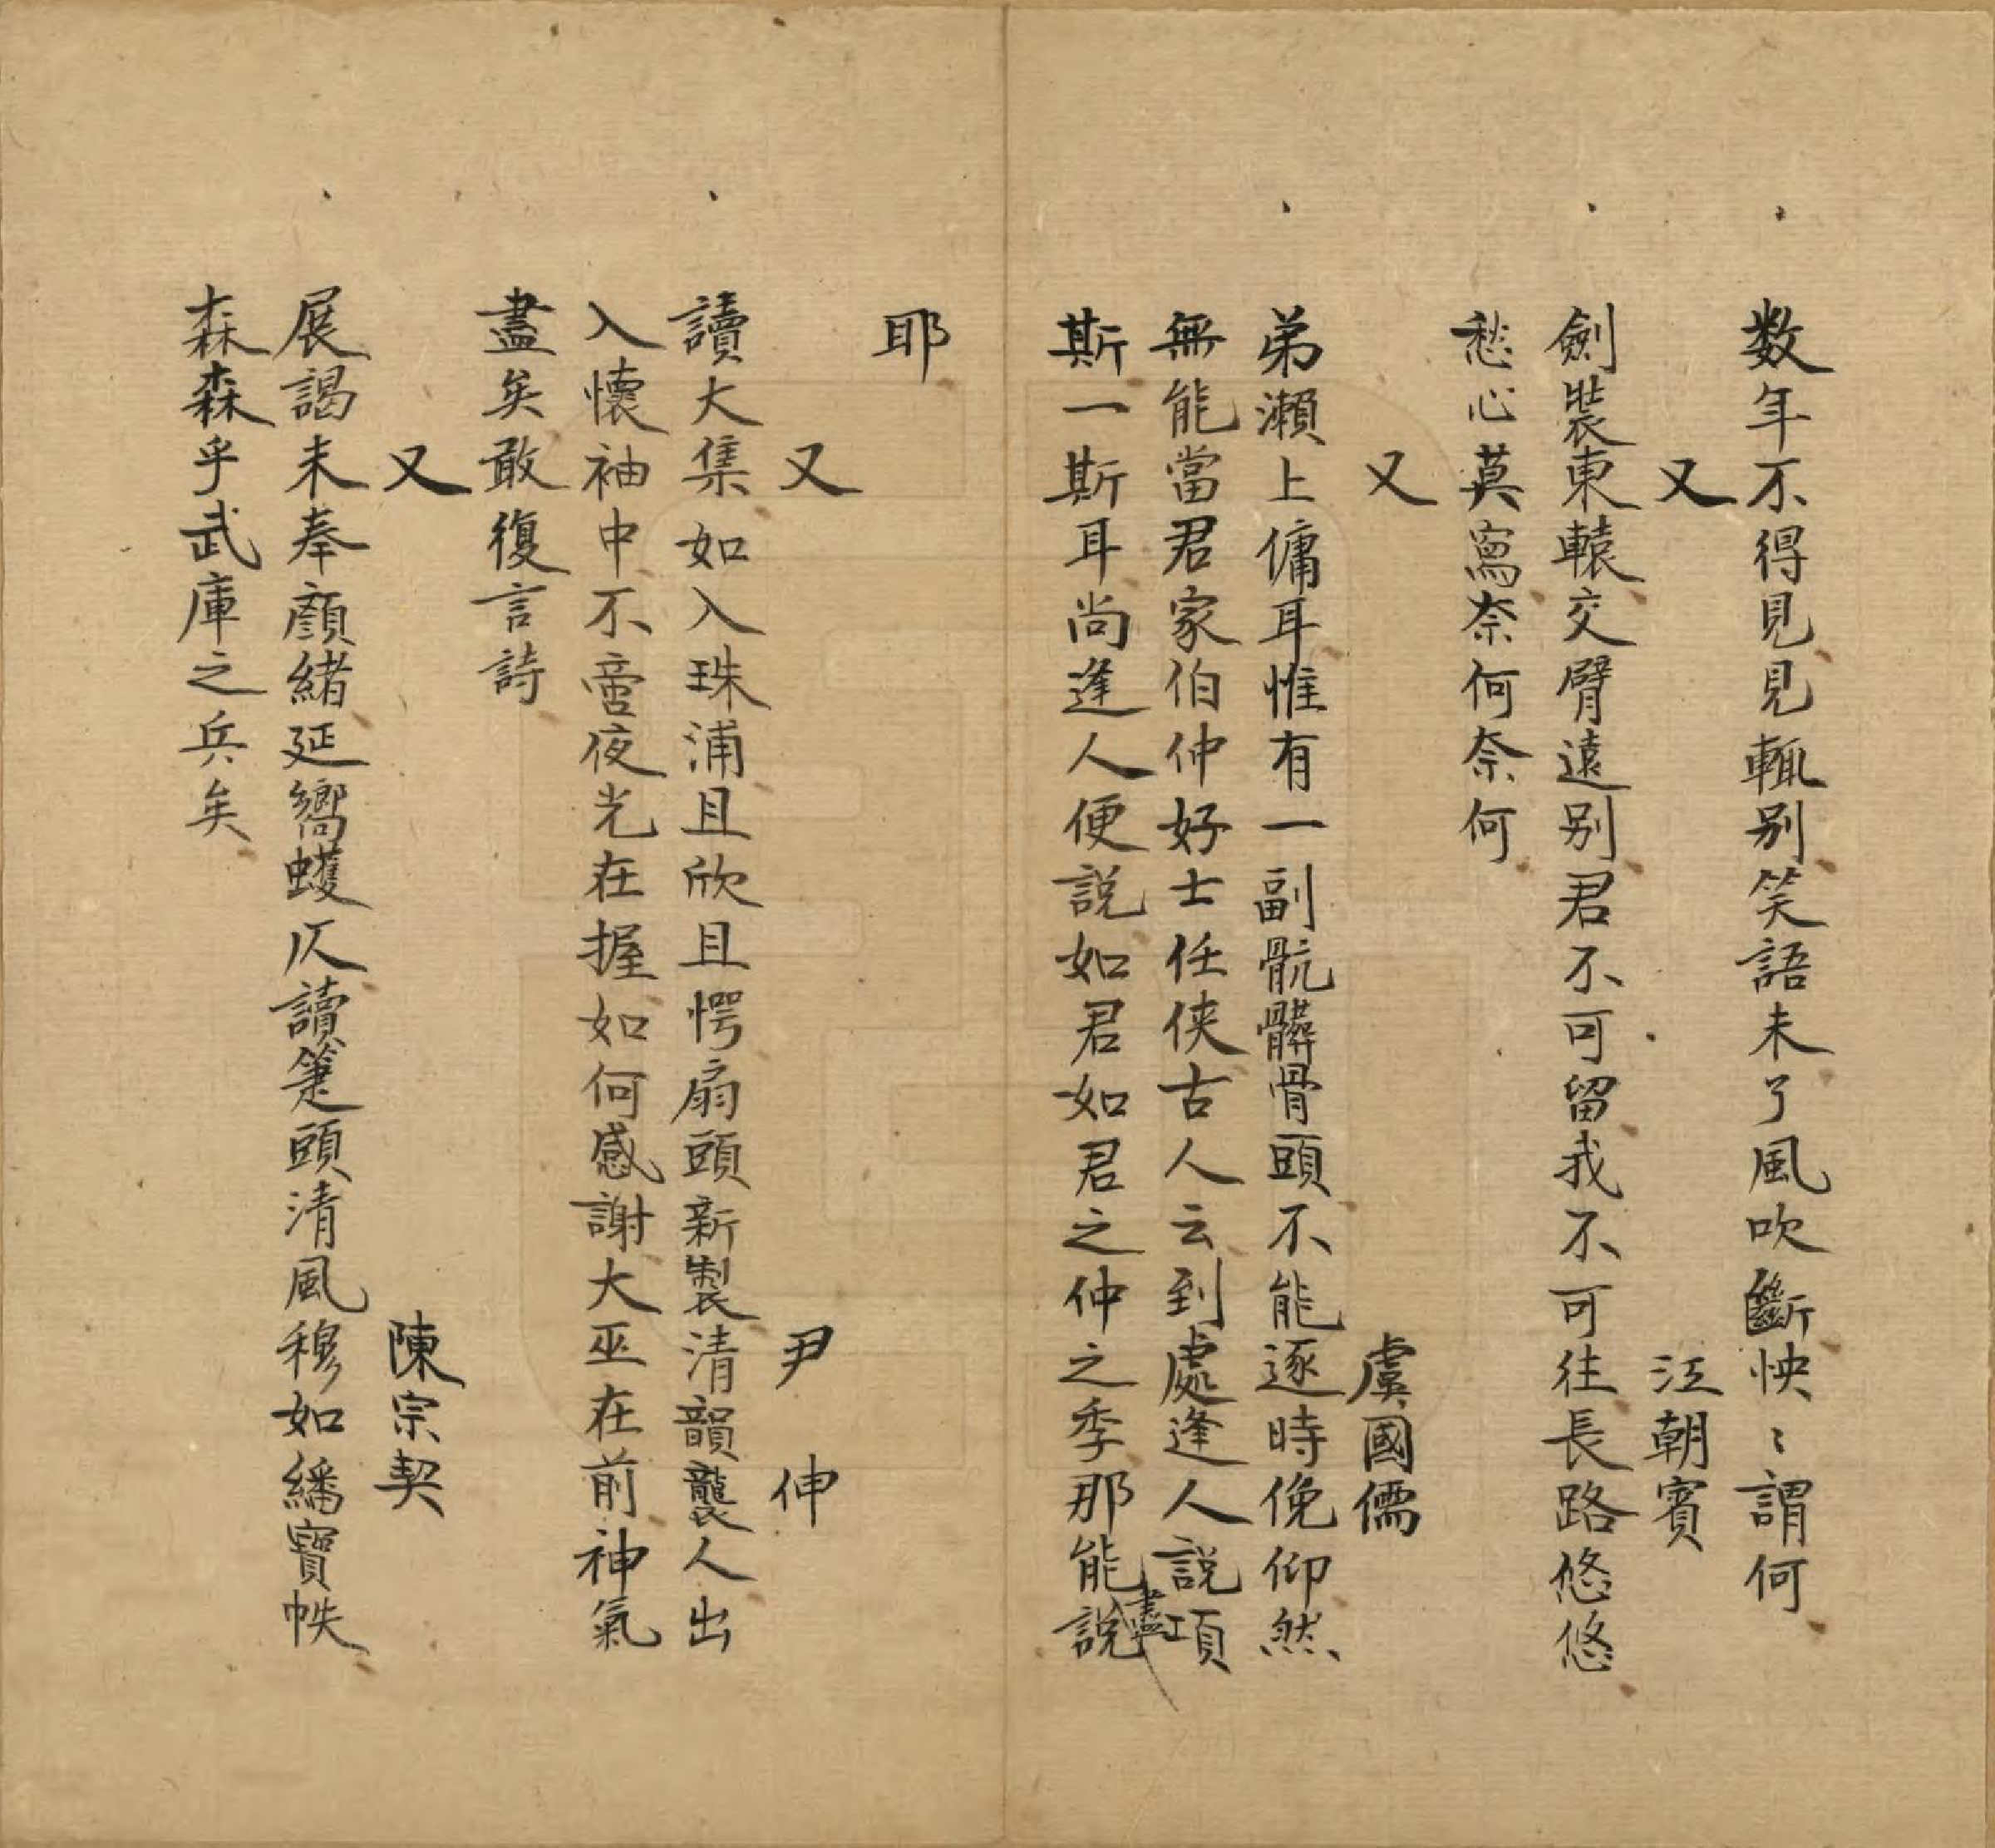 数年不得見見輒别笑語未了風吹斷怏〻謂何
又　江朝賓
劍裝東轅交臂遠别君不可留我不可往長路悠悠
愁心莫寫奈何奈何
又　虞國儒
弟瀨上傭耳惟有一副骯髒骨頭不能逐時俛仰然
無能當君家伯仲好士任侠古人云到處逢人説項
斯一斯耳尚逢人便説如君如君之仲之季那能説盡
耶
又　尹伸
讀大集如入珠浦且欣且愕扇頭新製清韻襲人出
入懷袖中不啻夜光在握如何感謝大巫在前神氣
盡矣敢復言詩
又　陳宗契
展謁未奉顔緒延嚮蠖仄讀箑頭清風穆如繙寶帙
森森乎武庫之兵矣